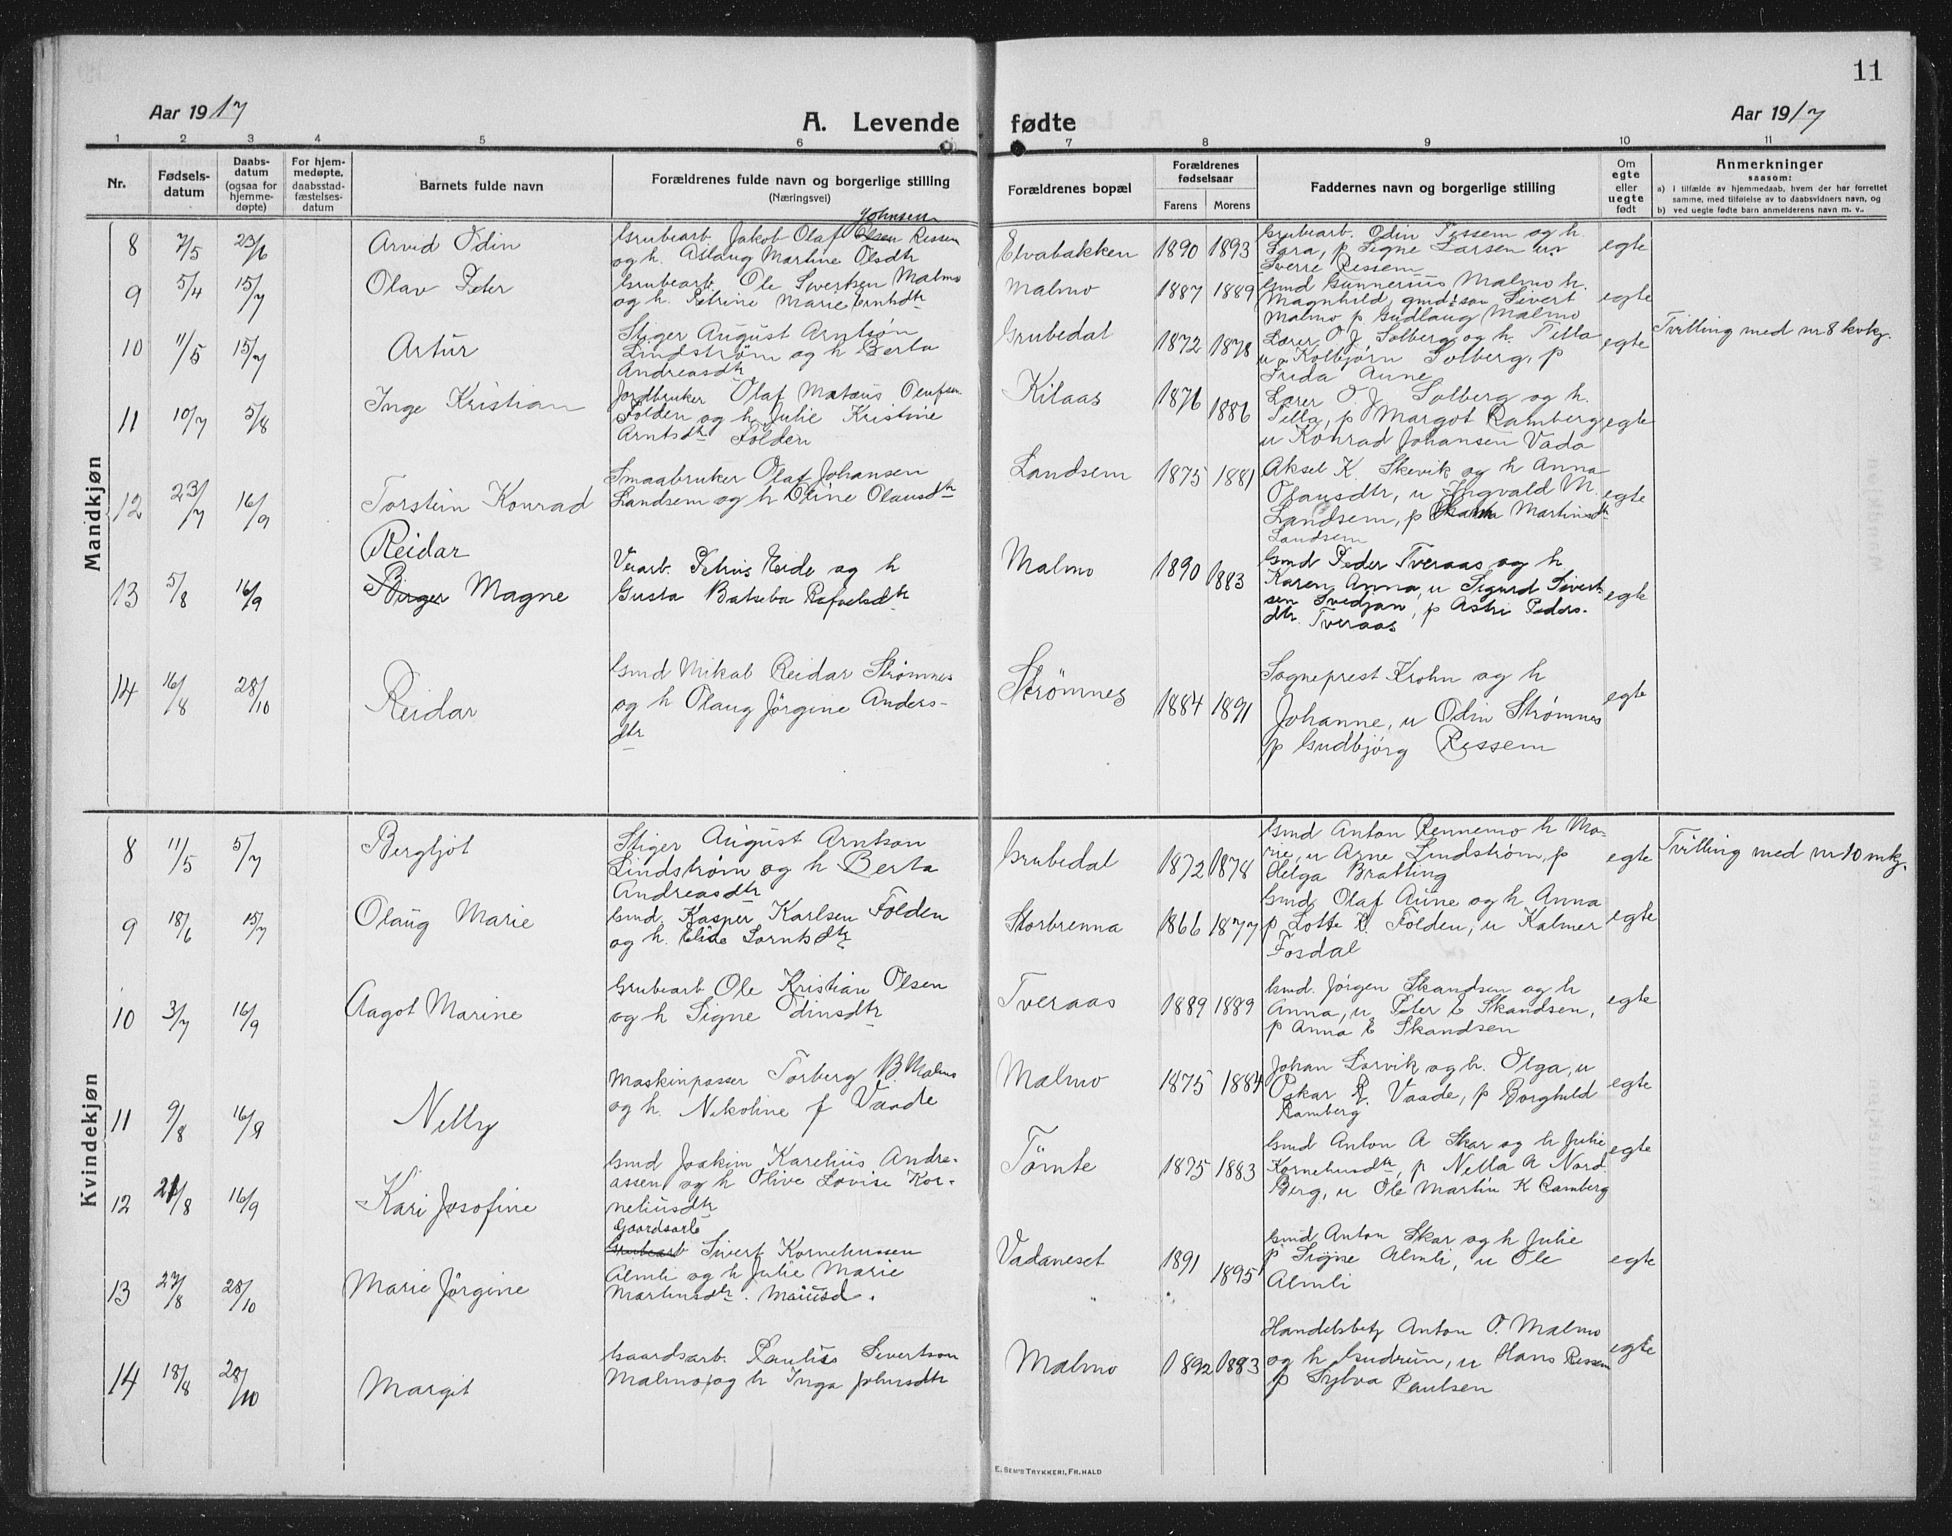 11
Aar 1917
A. Levende fødte
Aar 1917
1 2 3 4 5 6 7 8 9 10 11
Nr.
Fødsels-
datum
Daabs-
datum
(ogsaa for
hjemme-
døpte)
For hjem-
medøpte.
daabsstad-
fæstelses-
datum
Barnets fulde navn
Forældrenes fulde navn og borgerlige stilling
(Næringsvei)
Forældrenes bopæl
Forældrenes
fødselsaar
Farens Morens
Faddernes navn og borgerlige stilling
Om
egte
eller
uegte
født
Anmerkninger
saasom:
a) i tilfælde av hjemmedaab, hvem der har forrettet
samme, med tilføielse av to daabsvidners navn, og
b) ved uegte fødte barn anmelderens navn m. v..
Mandkjøn
8 7/5 23/6 Arvid Odin
Johnsen
Grubearb. Jakob Olaf Olsen Ressem
og h. Aslaug Martine Olsdtr
Elvabakken 1890 1893
Grubearb. Odin Tessem og h.
Sara, p Signe Larsen u
Sverre Ressem
egte
9 5/4 15/7 Olav Peter
Grubearb. Ole Sivertsen Malmo
og h. Petrine Marie Arntsdtr
Malmo 1887 1889
Gmd Gunnerius Malmo h.
Magnhild, gmds søn Sivert
Malmo p Gudlaug Malmo
egte
10 11/5 15/7 Artur
Stiger August Arntsøn
Lindstrøm og h Berta
Andreasdtr
Grubedal 1872 1878
Lærer O. J. Solberg og h. Tilla
u Kolbjørn Solberg, p
Frida Aune
egte
Tvilling med nr 8 kvkj.
11 10/7 5/8 Inge Kristian
Jordbruker Olaf Mataus Olufsen
Folden og h. Julie Kristine
Arntsdtr Folden
Kilaas 1876 1886
Lærer O. J. Solberg og h.
Tilla, p Margot Ramberg
u Konrad Johansen Vada
egte
12 23/7 16/9 Torstein Konrad
Smaabruker Olaf Johansen
Landsem og h Oline Olausdtr
Landsem 1875 1881
Aksel K. Skevik og h Anna
Olausdtr, u Ingvald M.
Landsem, p Martinsdtr
Landsem
egte
13 5/8 16/9 Reidar
Birger Magne
Verarb. Petrus Heide og h
Gusta Batseba Rafaelsdtr
Malmo 1890 1883
Gmd Peder Tveraas og h
Karen Anna, u Sigurd Sivert-
sen Svedjan, p Astri Peders-
dtr. Tveraas
egte
14 16/8 28/10 Reidar
Gmd Mikal Reidar Strømnes
og h Olaug Jørgine Anders-
dtr
Strømnes 1884 1891
Sogneprest Krohn og h
Johanne, u Odin Strømnes
p Gudbjørg Ressem
egte
Kvindekjøn
8 11/5 5/7 Bergljot
Stiger August Arntson
Lindstrøm og h Berta
Andreasdtr
Grubedal 1872 1878
Gmd Anton Rennemo h Ma-
rie, u Arne Lindstrøm, p
Helga Bratting
egte
Tvilling med nr 10 mkj.
9 18/6 15/7 Olaug Marie
Gmd. Kasper Karlsen Folden
og h. Elise Lorntsdtr
Storbrenna 1866 1877
Gmd. Olaf Aune og h Anna
p Lotte K. Folden, u Kalmer
Fosdal
egte
10 3/7 16/9 Aagot Marine
Grubearb Ole Kristian Olsen
og h Signe Odinsdtr
Tveraas 1889 1889
Gmd. Jørgen Skandsen og h
Anna, u Peter E Skandsen,
p Anna E Skandsen
egte
11 9/8 16/9 Nelly
Maskinpasser Torberg B Malmo
og h. Nikoline f Vaade
Malmo 1875 1884
Johan Lorvik og h. Olga, u
Oskar R. Vaade, p Borghild
Ramberg
egte
12 21/8 16/9 Kari Josofine
Gmd Joakim Karelius Andre-
assen og h Olive Lovise Kor-
neliusdtr
Tømte 1875 1883
Gmd Anton A Skar og h Julie
Korneliusdtr, p Nella A Nord
Berg, u Ole Martin K Ramberg
egte
13 27/8 28/10 Marie Jørgine
Gaardsarb
Grubearb Sivert Korneliussen
Almli og h Julie Marie
Martinsdtr.
Vadaneset 1891 1895
Gmd Anton Skar og h Julie
p Signe Almli, u Ole
Almli
egte
14 18/8 28/10 Margit
Gaardsarb. Paulus Sivertson
Malmo, og h Inga Johnsdtr
Malmo 1892 1883
Handelsbetj Anton O. Malmo
og h Gudrun, u Hans Ressem
p Sylva Paulsen
egte
E. Sem's Trykkeri, Fr.hald